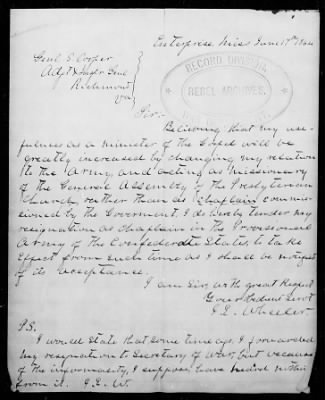 Enterprise, Miss June 17th 1864
Genl S. Cooper
Adjt & Inspr Genl
Richmond
Va
RECORD DIVISION
REBEL ARCHIVES.
WAR
Sir:
Believing that my use-
fulness as a minister of the Gospel will be
greatly increased by changing my relation
to the Army and acting as Missionary
of the General Assembly of the Presbyterian
Church, rather than as Chaplain commis-
sioned by the Goverment, I do hereby tender my
resignation as Chaplain in the Provisional
Army of the Confederate States, to take
effect from such time as I shall be notified
of its acceptance.
I am Sir, with great Respect
Your Obedient Servt
Wheeler
P.S.
I would state that some time ago, I forwarded
my resignation to Secretary of War, but because
of the informality, I suppose, have heard nothing
from it.